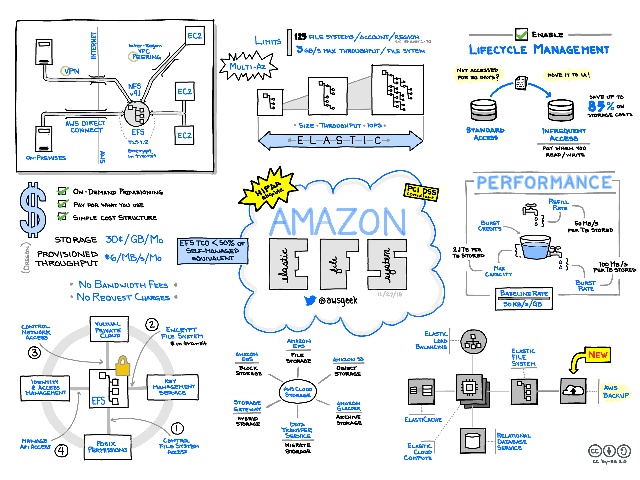 INTERNET
INTER-REGION
VPC
PEERING
EC2
VPN
NFS
V4.1
EC2
AWS DIRECT
CONNECT
EFS
TLS 1.2
EC2
ENCRYPT
IN TRANSIT
ON-PREMISES
LIMITS
125 FILE SYSTEMS/ACCOUNT/REGION
3 GB/S MAX THROUGHPUT/FILE SYTEM
MULTI-AZ
SIZE - THROUGHPUT - IOPS
ELASTIC
ENABLE
LIFECYCLE MANAGEMENT
NOT ACCESSED
FOR 30 DAYS?
MOVE IT TO IA!
SAVE UP TO
85% ON
STORAGE COSTS
STANDARD
ACCESS
INFREQUENT
ACCESS
PAY WHEN YOU
READ/WRITE
$
ON-DEMAND PROVISIONING
PAY FOR WHAT YOU USE
SIMPLE COST STRUCTURE
(OREGON)
STORAGE 30¢/GB/MO
PROVISIONED
THROUGHPUT $6/MB/S/MO
EFS TCO < 50% OF
SELF-MANAGED
EQUIVALENT
NO BANDWIDTH FEES
NO REQUEST CHARGES
HIPAA
PCI DSS
AMAZON
EFS
elastic
file
system
@awsgeek
PERFORMANCE
REFILL
RATE
BURST
CREDITS
50 MB/S
PER TB STORED
2.1TB
PER TB STORED
MAX
CAPACITY
100 MB/S
PER TB STORED
BURST
RATE
BASELINE RATE
50 KB/S/GB
CONTROL
NETWORK
ACCESS
VIRTUAL
PRIVATE
CLOUD
2
ENCRYPT
FILE SYSTEM
3
IDENTITY
& ACCESS
MANAGEMENT
EFS
KEY
MANAGEMENT
SERVICE
MANAGE
API ACCESS
4
POSIX
PERMISSIONS
1
CONTROL
FILE SYSTEM
ACCESS
AMAZON
EFS
FILE
STORAGE
AMAZON
EBS
BLOCK
STORAGE
AMAZON S3
OBJECT
STORAGE
AWS CLOUD
STORAGE
STORAGE
GATEWAY
HYBRID
STORAGE
AMAZON
GLACIER
ARCHIVE
STORAGE
DATA
TRANSFER
SERVICE
MIGRATE
STORAGE
ELASTIC
LOAD
BALANCING
ELASTIC
FILE
SYSTEM
NEW
AWS
BACKUP
ELASTICACHE
ELASTIC
CLOUD
COMPUTE
RELATIONAL
DATABASE
SERVICE